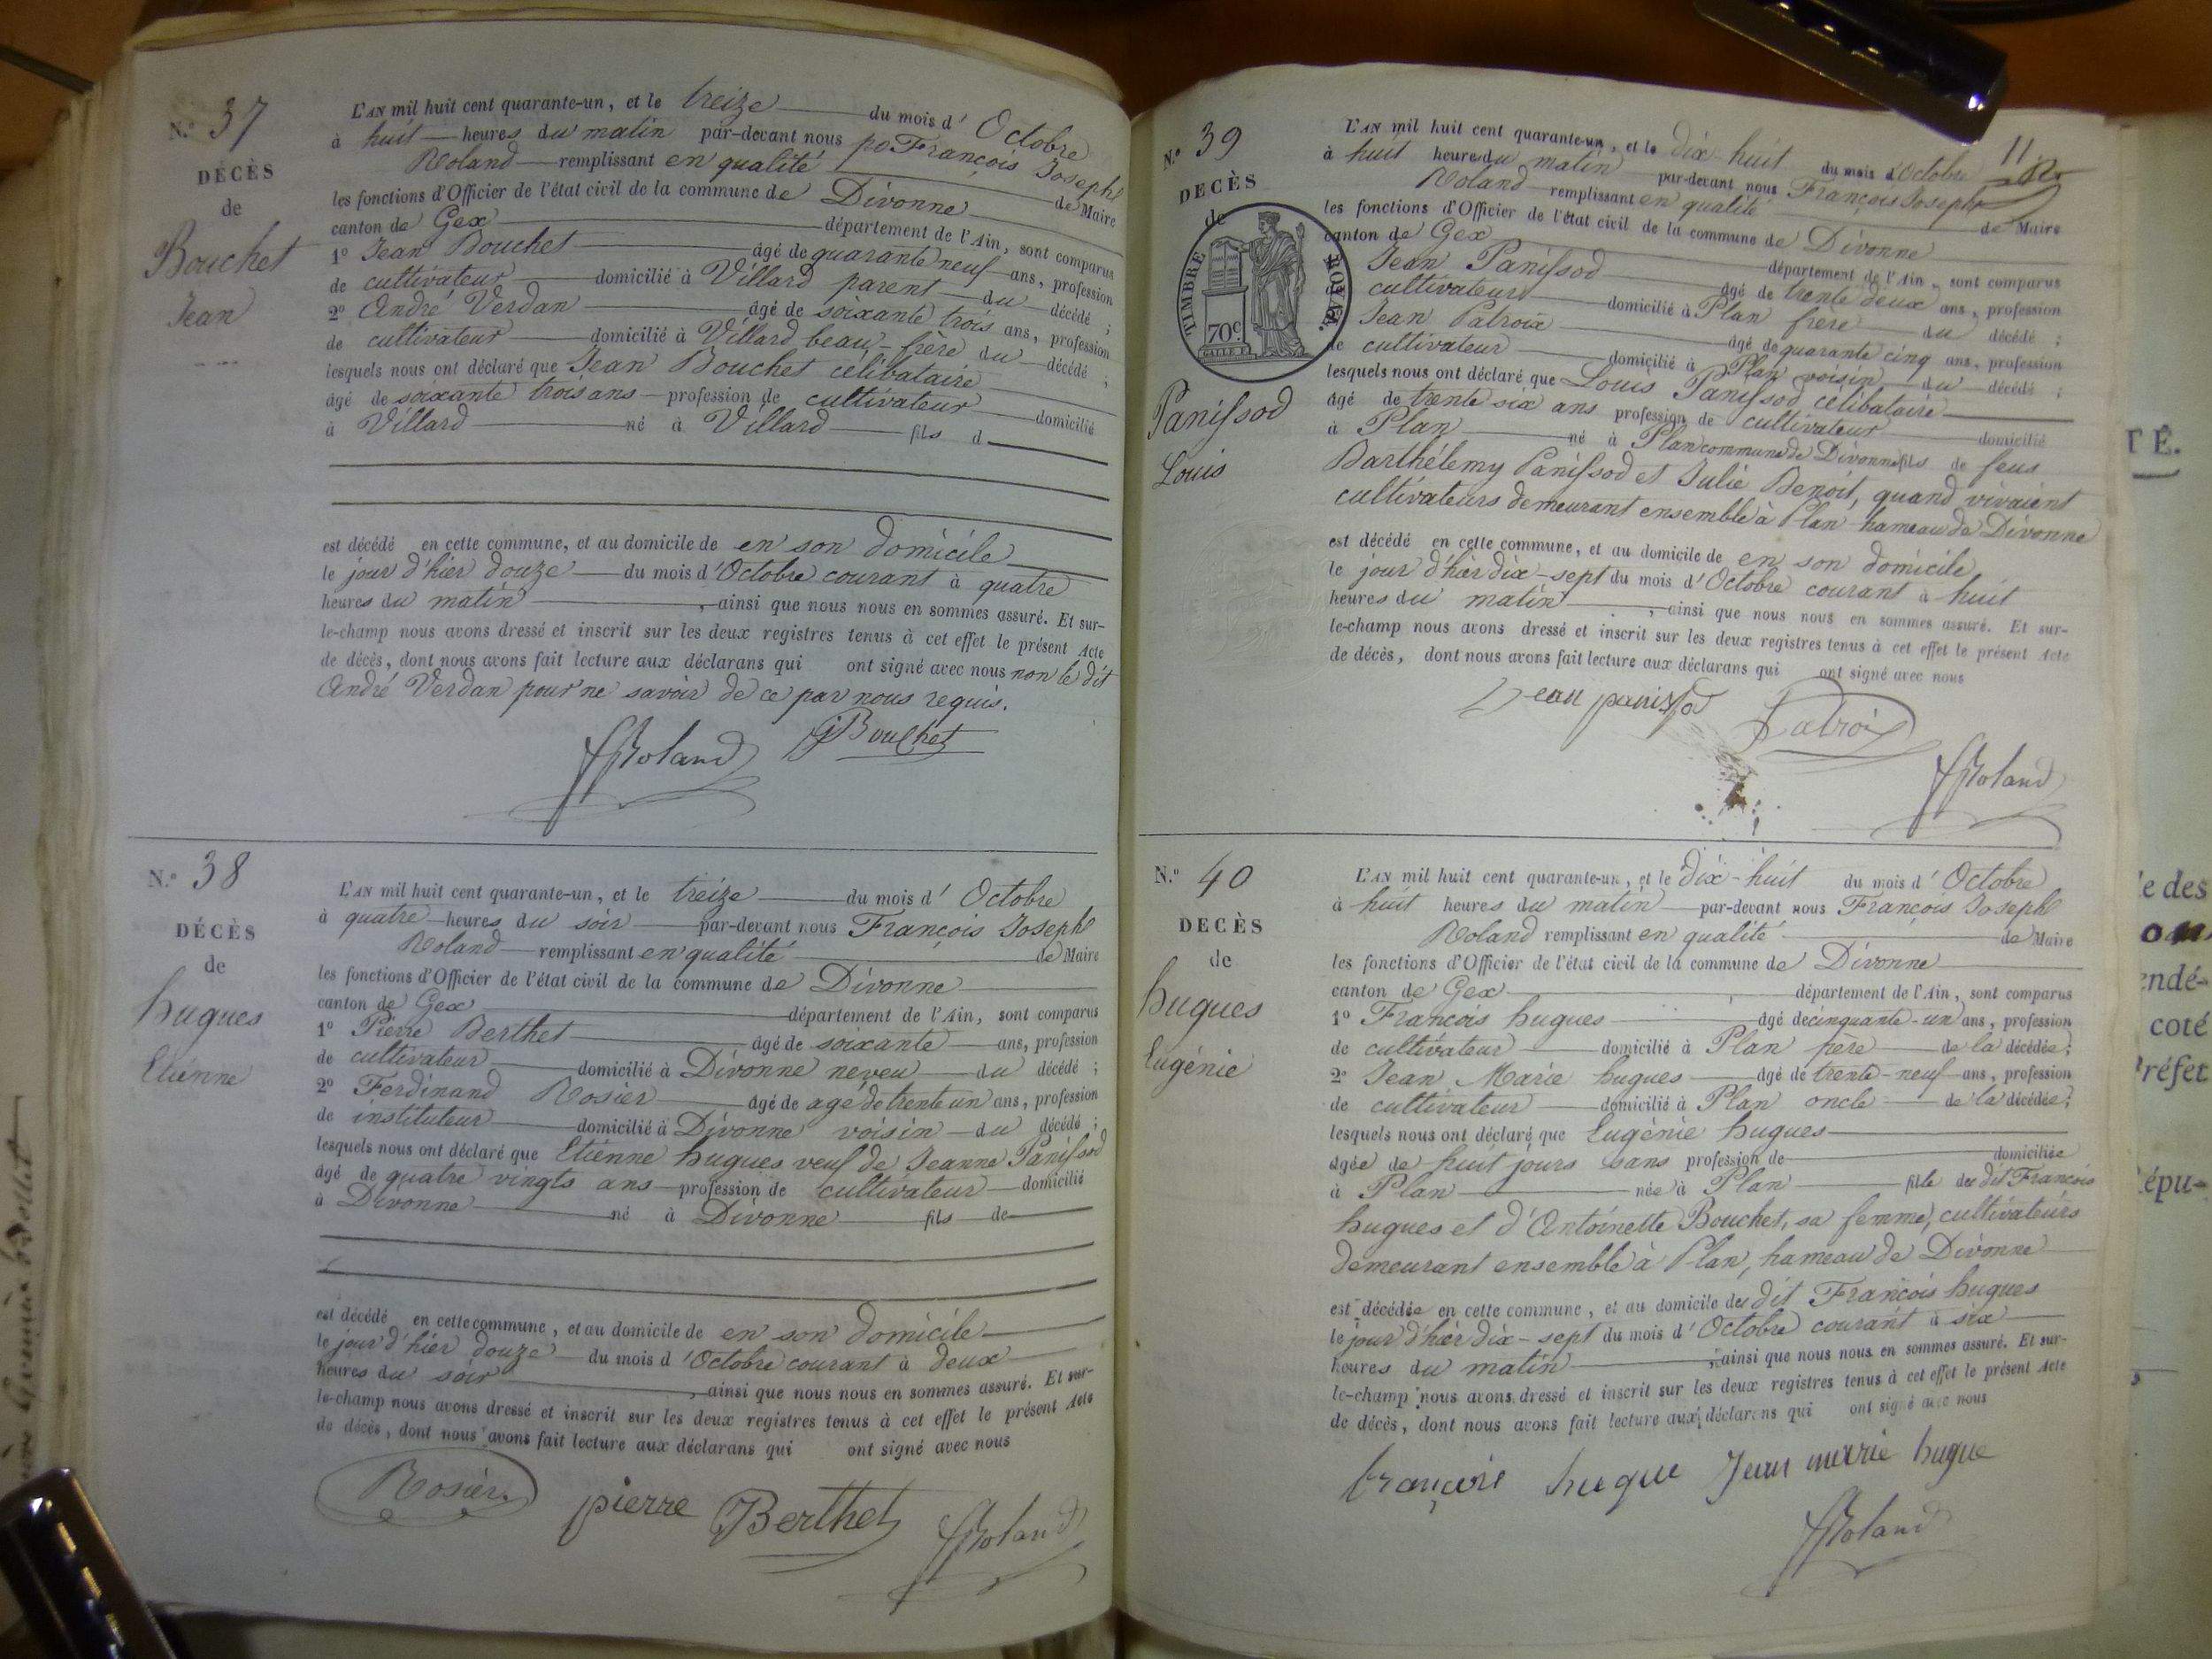 N.º 37
DÉCÈS
de
Bouchet
Jean
L'AN mil huit cent quarante-un, et le treize du mois d' Octobre
à huit heures du matin par-devant nous François Joseph
Roland remplissant en qualité de Maire
les fonctions d'Officier de l'état civil de la commune de Divonne
canton de Gex département de l'Ain, sont comparus
1º Jean Bouchet âgé de quarante neuf ans, profession
de cultivateur domicilié à Villard parent du décédé ;
2º André Verdan âgé de soixante trois ans, profession
de cultivateur domicilié à Villard beau-frère du décédé ;
lesquels nous ont déclaré que Jean Bouchet célibataire
âgé de soixante trois ans profession de cultivateur domicilié
à Villard né à Villard fils d
est décédé en cette commune, et au domicile de en son domicile
le jour d'hier douze du mois d'Octobre courant à quatre
heures du matin, ainsi que nous nous en sommes assuré. Et sur-
le-champ nous avons dressé et inscrit sur les deux registres tenus à cet effet le présent Acte
de décès, dont nous avons fait lecture aux déclarans qui ont signé avec nous non le dit
André Verdan pour ne savoir de ce par nous requis.
JBouchet
fRoland
N.º 38
DÉCÈS
de
hugues
Etienne
L'AN mil huit cent quarante-un, et le treize du mois d' Octobre
à quatre heures du soir par-devant nous François Joseph
Roland remplissant en qualité de Maire
les fonctions d'Officier de l'état civil de la commune de Divonne
canton de Gex département de l'Ain, sont comparus
1º Pierre Berthet âgé de soixante ans, profession
de cultivateur domicilié à Divonne neveu du décédé ;
2º Ferdinand Rosier âgé de agé de trente un ans, profession
de instituteur domicilié à Divonne voisin du décédé ;
lesquels nous ont déclaré que Etienne hugues veuf de Jeanne Panissod
âgé de quatre vingts ans profession de cultivateur domicilié
à Divonne né à Divonne fils de
est décédé en cette commune, et au domicile de en son domicile
le jour d'hier douze du mois d'Octobre courant à deux
heures du soir, ainsi que nous nous en sommes assuré. Et sur-
le-champ nous avons dressé et inscrit sur les deux registres tenus à cet effet le présent Acte
de décès, dont nous avons fait lecture aux déclarans qui ont signé avec nous
Rosier
pierre Berthet
fRoland
11
N.º 39
DECÈS
de
TIMBRE ROYAL
70c
Panissod
Louis
L'AN mil huit cent quarante-un, et le dix-huit du mois d'Octobre
à huit heures du matin par-devant nous François Joseph
Roland remplissant en qualité de Maire
les fonctions d'Officier de l'état civil de la commune de Divonne
canton de Gex département de l'Ain, sont comparus
Jean Panissod âgé de trente deux ans, profession
cultivateur domicilié à Plan frère du décédé ;
Jean Patroix âgé de quarante cinq ans, profession
de cultivateur domicilié à Plan voisin du décédé ;
lesquels nous ont déclaré que Louis Panissod célibataire
âgé de trente six ans profession de cultivateur domicilié
à Plan né à Plan commune de Divonne fils de feus
Barthélemy Panissod et Julie Benoit, quand vivaient
cultivateurs demeurant ensemble à Plan hameau de Divonne
est décédé en cette commune, et au domicile de en son domicile
le jour d'hier dix-sept du mois d'Octobre courant à huit
heures du matin, ainsi que nous nous en sommes assuré. Et sur-
le-champ nous avons dressé et inscrit sur les deux registres tenus à cet effet le présent Acte
de décès, dont nous avons fait lecture aux déclarans qui ont signé avec nous
Jean panissod
Patroix
fRoland
N.º 40
DECÈS
de
hugues
Eugénie
L'AN mil huit cent quarante-un, et le dix-huit du mois d' Octobre
à huit heures du matin par-devant nous François Joseph
Roland remplissant en qualité de Maire
les fonctions d'Officier de l'état civil de la commune de Divonne
canton de Gex département de l'Ain, sont comparus
1º François hugues âgé de cinquante-un ans, profession
de cultivateur domicilié à Plan père de la décédée ;
2º Jean Marie hugues âgé de trente-neuf ans, profession
de cultivateur domicilié à Plan oncle de la décédée ;
lesquels nous ont déclaré que Eugénie hugues
agée de huit jours sans profession de domiciliée
à Plan née à Plan fille du dit François
hugues et d'Antoinette Bouchet, sa femme, cultivateurs
demeurant ensemble à Plan, hameau de Divonne
est décédée en cette commune, et au domicile du dit François hugues
le jour d'hier dix-sept du mois d'Octobre courant à six
heures du matin, ainsi que nous nous en sommes assuré. Et sur-
le-champ nous avons dressé et inscrit sur les deux registres tenus à cet effet le présent Acte
de décès, dont nous avons fait lecture aux déclarans qui ont signé avec nous
françois hugue Jean marie hugue
fRoland
TÉ.
e des
endé-
coté
réfet
épu-